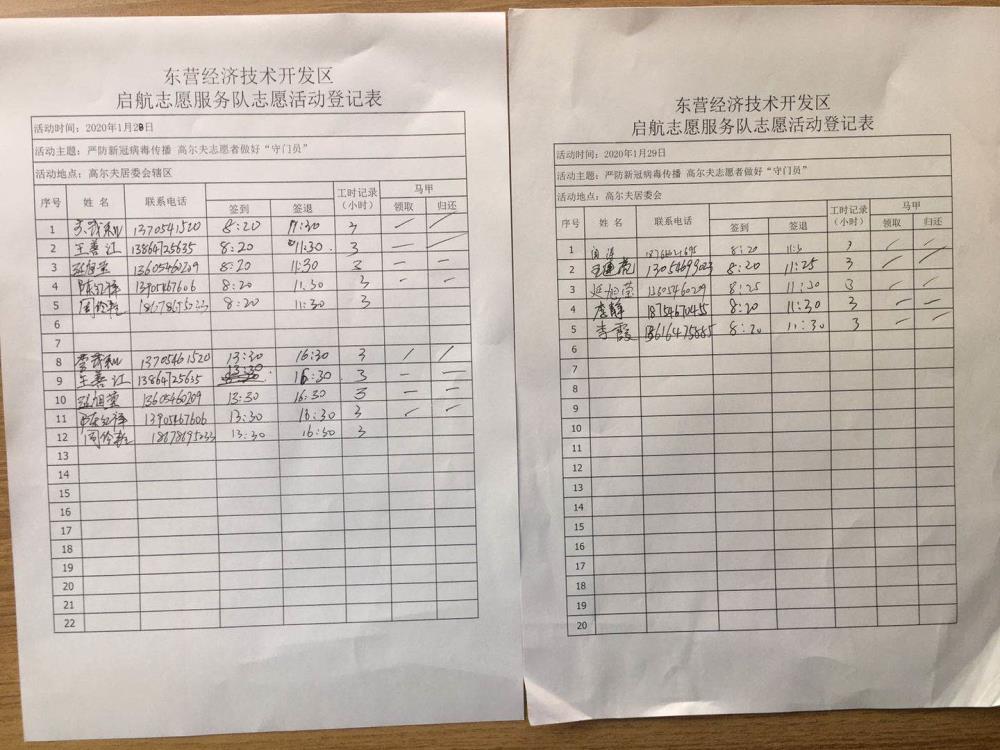 东营经济技术开发区
启航志愿服务队志愿活动登记表
活动时间：2020年1月28日
活动主题：严防新冠病毒传播 高尔夫志愿者做好“守门员”
活动地点：高尔夫居委会辖区
序号 姓 名 联系电话 签到 签退 工时记录（小时） 马甲 领取 归还
1 13705461520 8:20 11:30 3
2 王善江 13864725635 8:20 11:30 3
3 13605460209 8:20 11:30 3
4 13905467606 8:20 11:30 3
5 8:20 11:30 3
6
7
8 13705461520 13:30 16:30 3
9 王善江 13864725635 13:30 16:30 3
10 13605460209 13:30 16:30 3
11 13905467606 13:30 16:30 3
12 13:30 16:30 3
13
14
15
16
17
18
19
20
21
22
东营经济技术开发区
启航志愿服务队志愿活动登记表
活动时间：2020年1月29日
活动主题：严防新冠病毒传播 高尔夫志愿者做好“守门员”
活动地点：高尔夫居委会
序号 姓 名 联系电话 签到 签退 工时记录（小时） 马甲 领取 归还
1 8:20 3
2 8:20 11:25 3
3 13605460209 8:25 11:30 3
4 18754670455 8:20 11:30 3
5 李霞 8:20 11:30 3
6
7
8
9
10
11
12
13
14
15
16
17
18
19
20